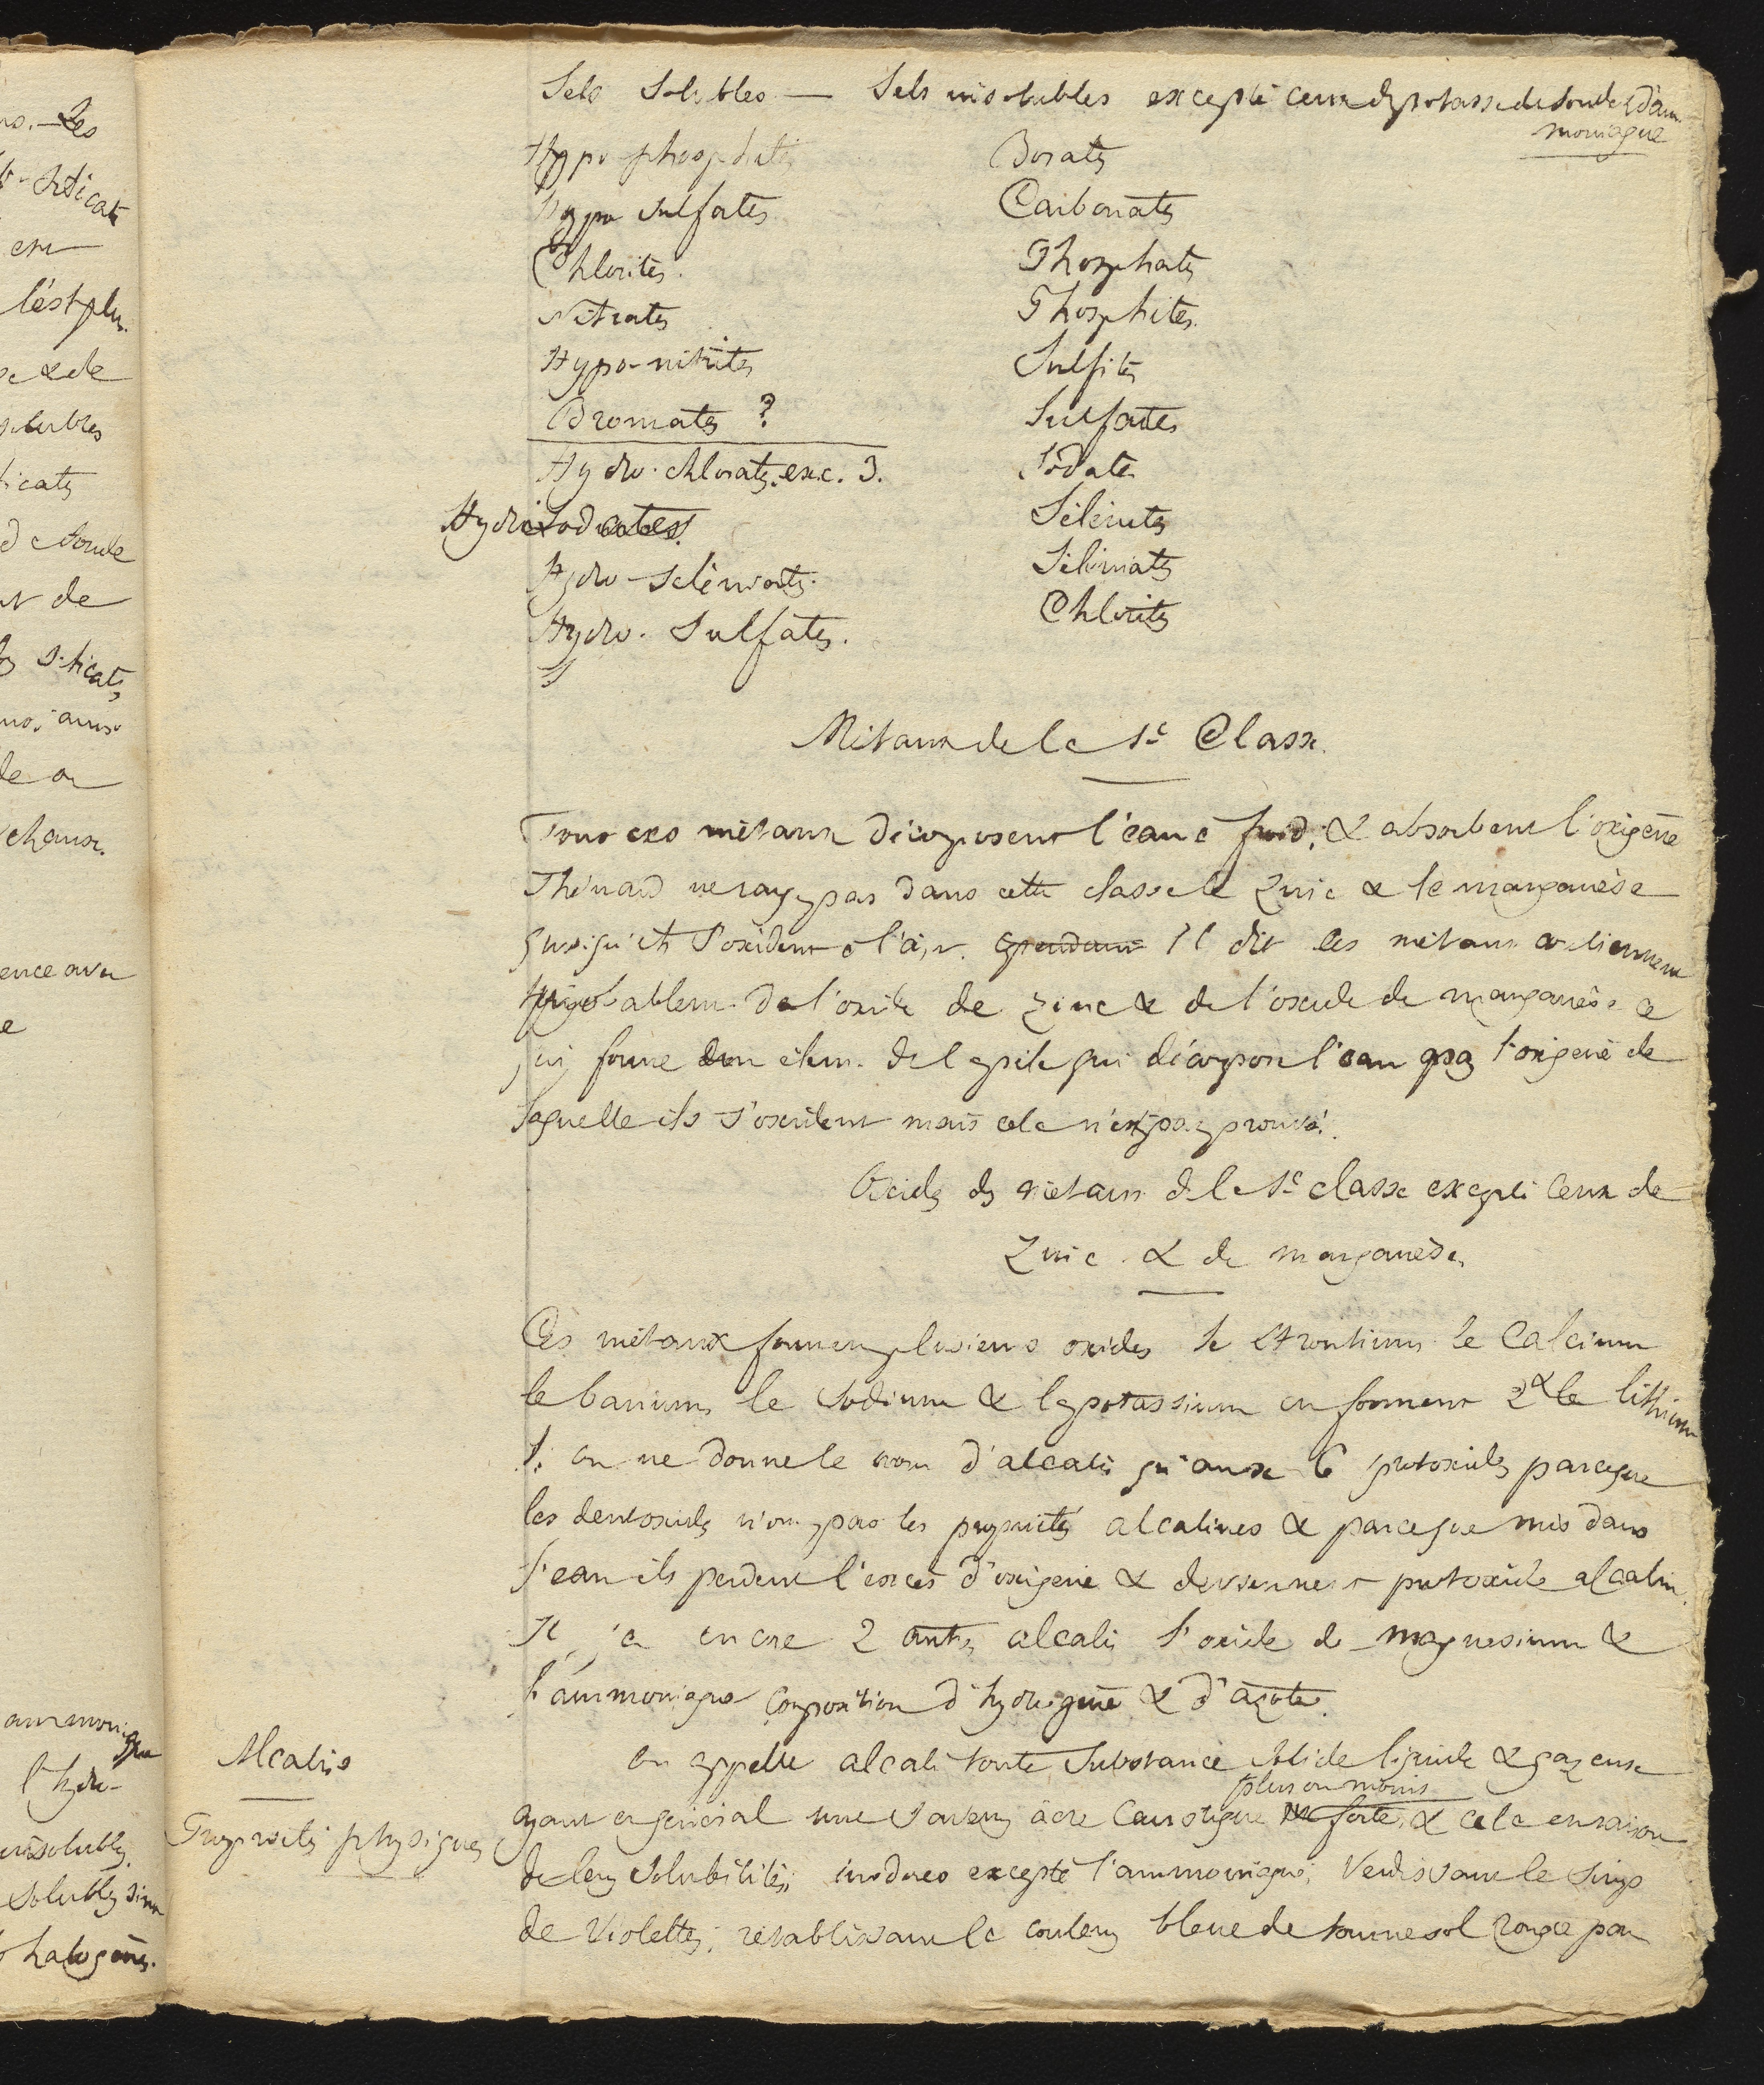 Sels Solubles — Sels insolubles excepté ceux de potasse de soude & d'am
moniaque
Hypo-phosphites
hypo sulfates
Chlorites.
Nitrates
Hypo-nitrites
Bromates ?
Hydro-chlorates. exc. 3.
Hydriodates.
Hydro-séléniates.
Hydro. Sulfates.
Borates
Carbonates
Phosphates
Phosphites.
Sulfites
Sulfates
Iodates
Sélénites
Séléniates
Chlorites
Métaux de la 1e Classe.
Tous ces métaux décomposent l'eau à froid, & absorbent l'oxigène
Thénard ne range pas dans cette classe le Zinc & le manganèse
quoiqu'ils s'oxident à l'air. cependant Il dit les métaux contiennent
probablem. de l'oxide de zinc & de l'oxide de manganèse ce
qui forme un élém. de la pile qui décompose l'eau l'oxigène de
laquelle ils s'oxident mais cela n'est pas prouvé.
Oxides des métaux de la 1e classe excepté ceux de
Zinc & de manganèse.
Ces métaux forment plusieurs oxides le strontium le Calcium
le barium le sodium & le potassium en forment 2 & le lithium
1. on ne donne le nom d'alcalis qu'aux 6 protoxides parceque
les deutoxides n'ont pas les propriétés alcalines & parceque mis dans
l'eau ils perdent l'excès d'oxigène & deviennent protoxide alcalin.
Il y a encore 2 autres alcalis l'oxide de magnesium &
l'ammoniaque composition d'hydrogène & d'azote.
Alcalis
on appelle alcali toute Substance solide liquide & gazeuse
plus ou moins
Propriétés physiques
ayant en général une saveur âcre Caustique forte, & cela en raison
de leur solubilité; inodores excepté l'ammoniaque; Verdissant le sirop
de Violettes; rétablissant la couleur bleue de tournesol rougie par